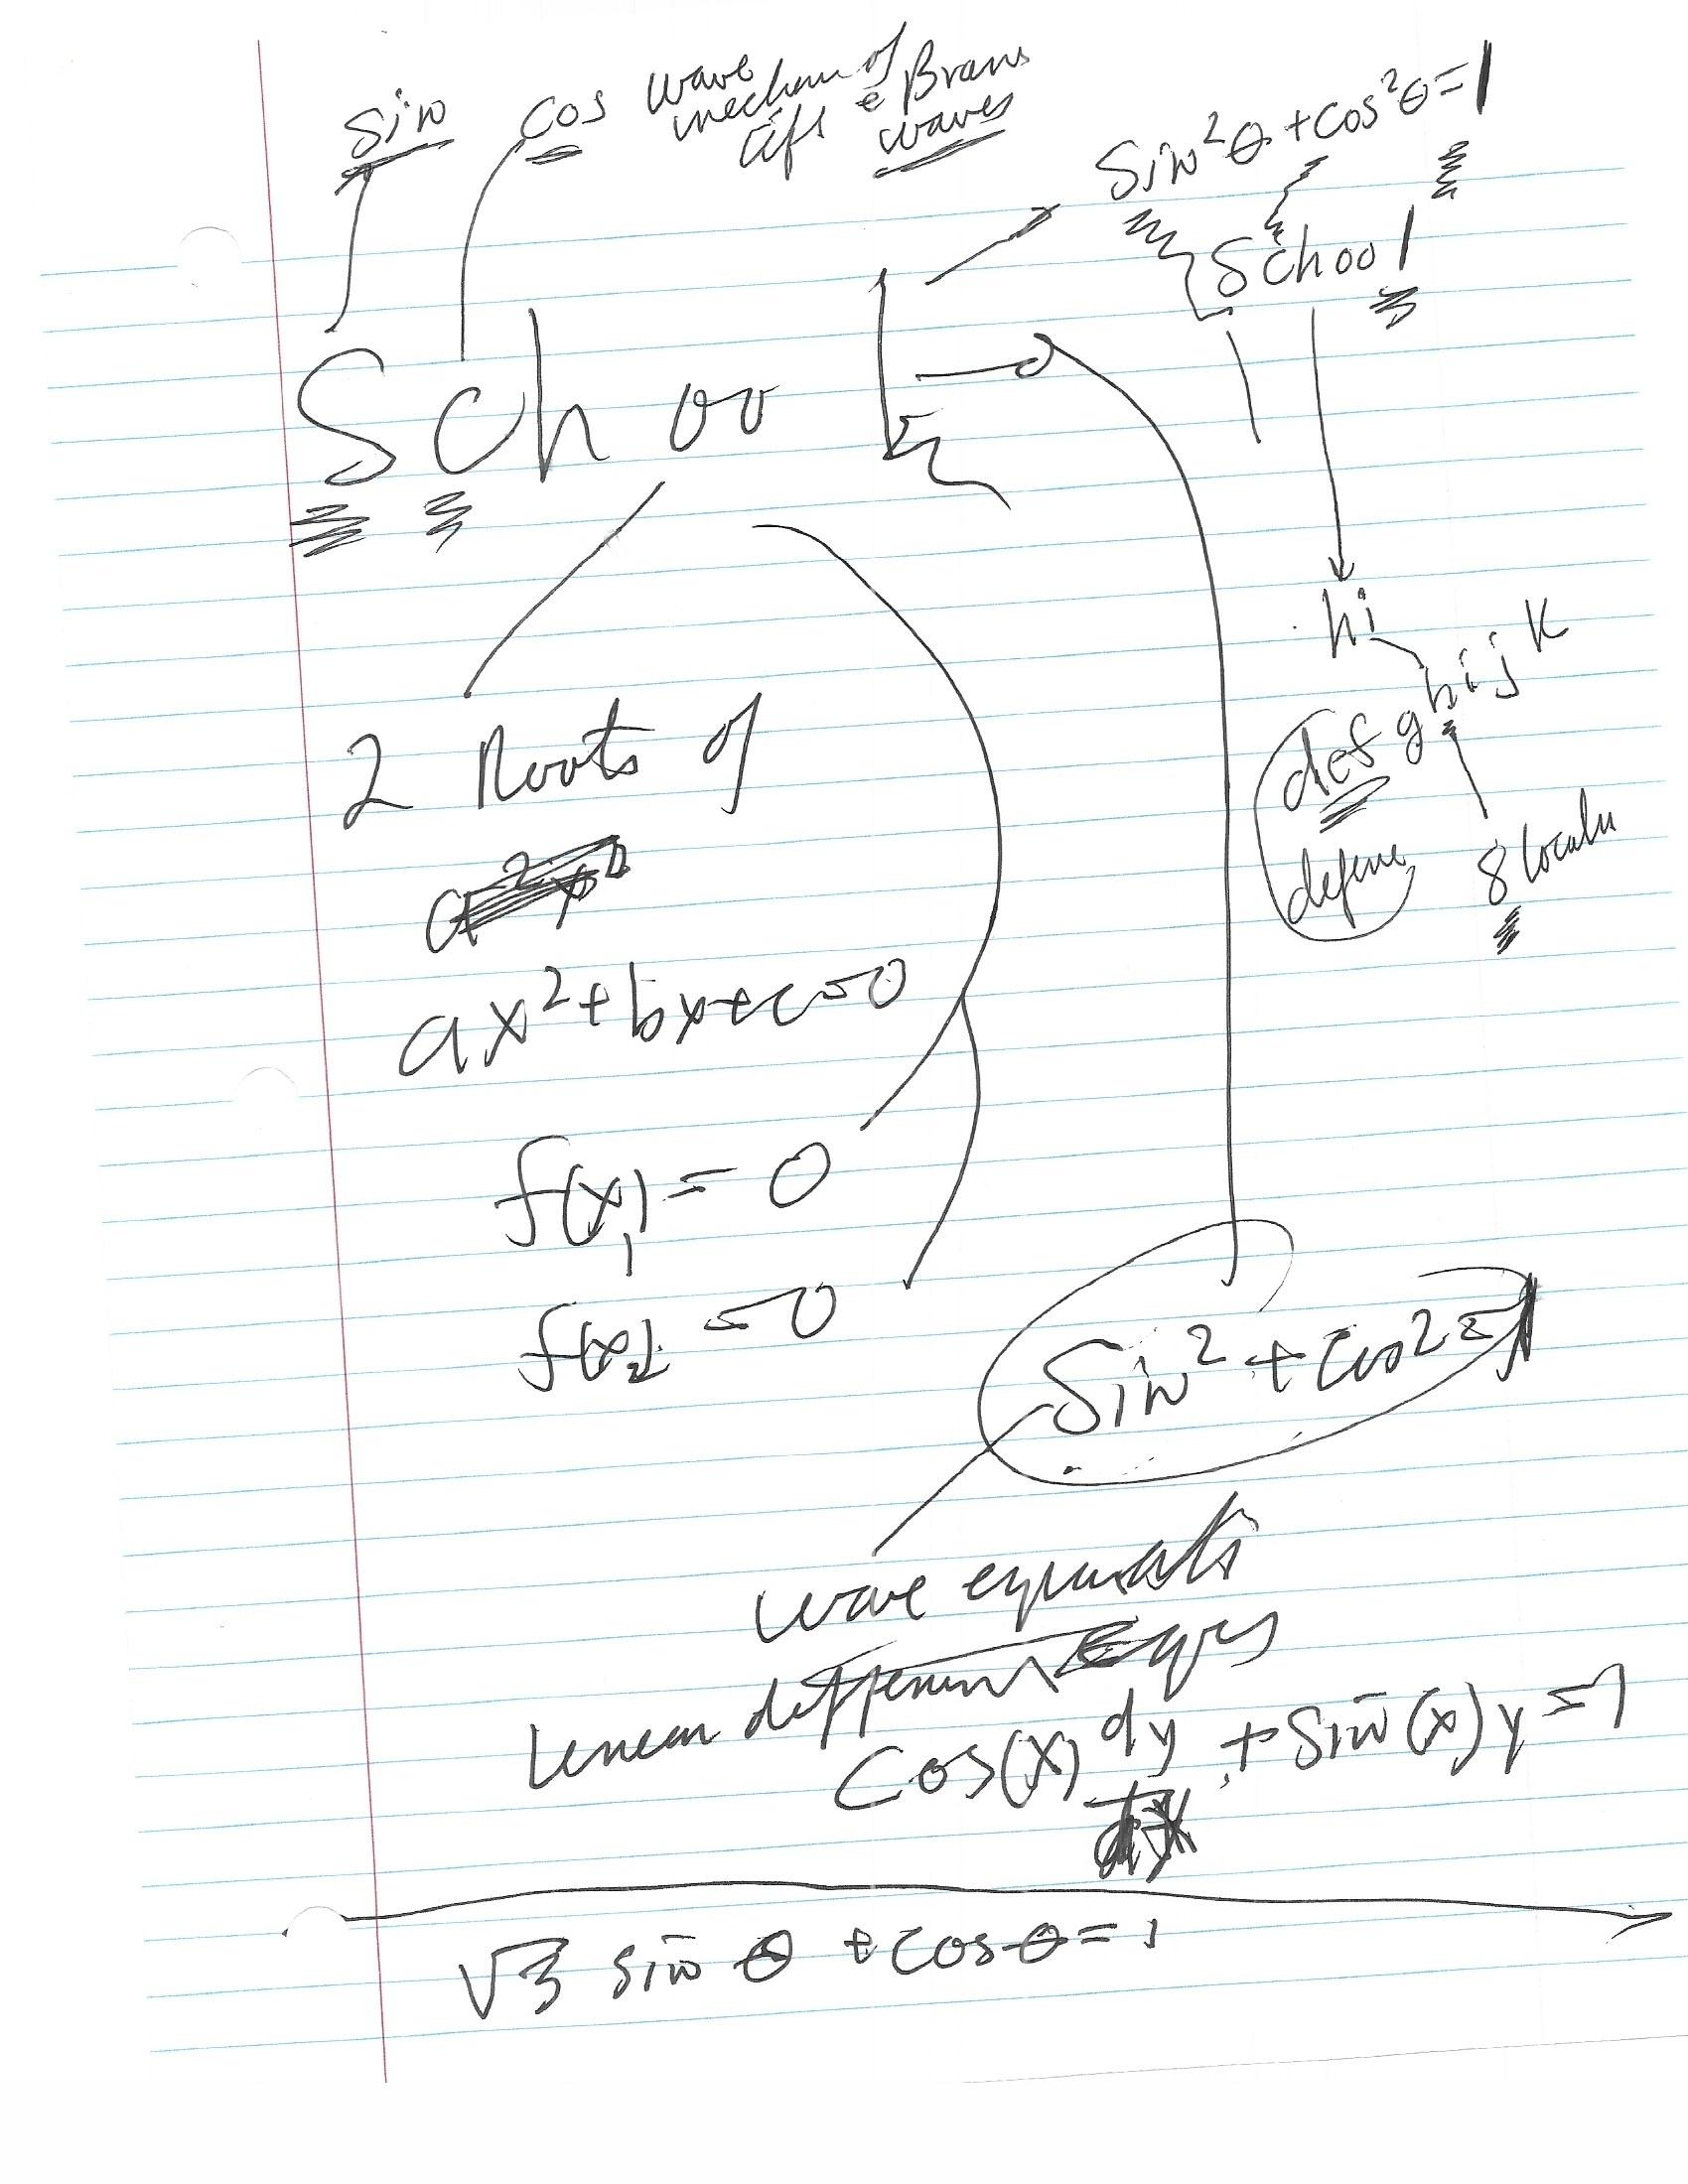 sin cos wave
mechan of
life & Brain
waves
Sin²θ + cos²θ = 1
School
School
hi
def g hijk
define
8 local
2 Roots of
a²x²
ax² + bx + c = 0
f(x₁) = 0
f(x₂) = 0
Sin² + cos² = 1
wave
linear Eqns
Cos(x) dy/dx + Sin(x) y = 1
√3 sin θ + cos θ = 1